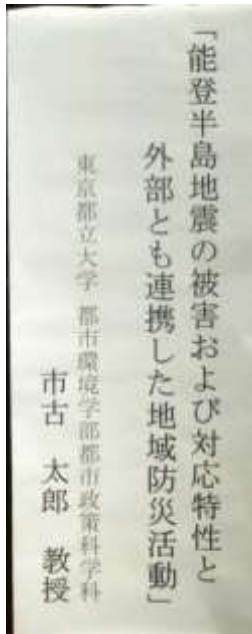 「能登半島地震の被害および対応特性と
外部とも連携した地域防災活動」
東京都立大学 都市環境学部都市政策科学科
市古 太郎 教授